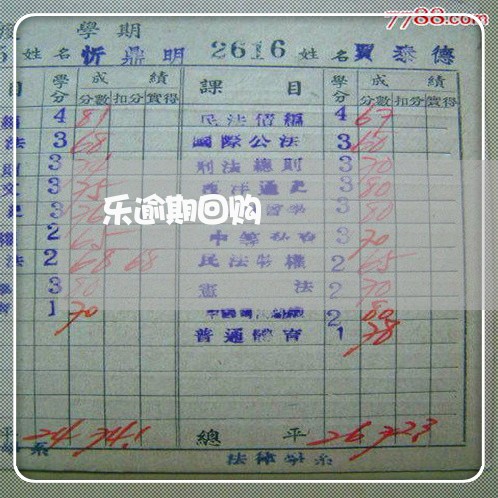 7788.com
學期
5 姓名 忻鼎明 2616 姓名 賈泰德
目 學分 成績 分數 扣分 實得 課目 學分 成績 分數 扣分 實得
4 81 民法債編 4 67
法 3 68 國際公法 3 60
3 刑法總則 3 70
文 3 75 西洋通史 3 80
3 3 80
權 2 65 3 70
法 2 68 68 民法物權 2 65
3 80 憲法 2 70
1 70 2 80
普通體育 1 78
平 24 74.1 總平 26 72.3
系 法律學系
乐逾期回购